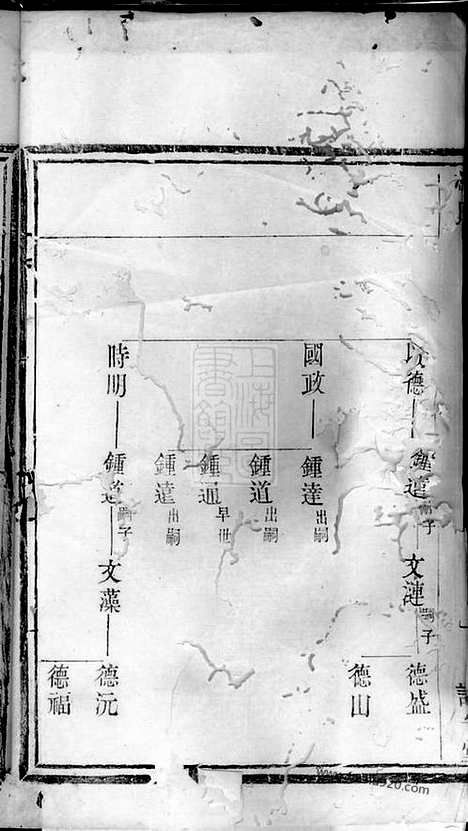 以德
鍾達嗣子
文漣嗣子
德盛
德山
國政
鍾達出嗣
鍾道出嗣
鍾通早世
鍾達出嗣
時明
鍾道嗣子
文藻
德沅
德福